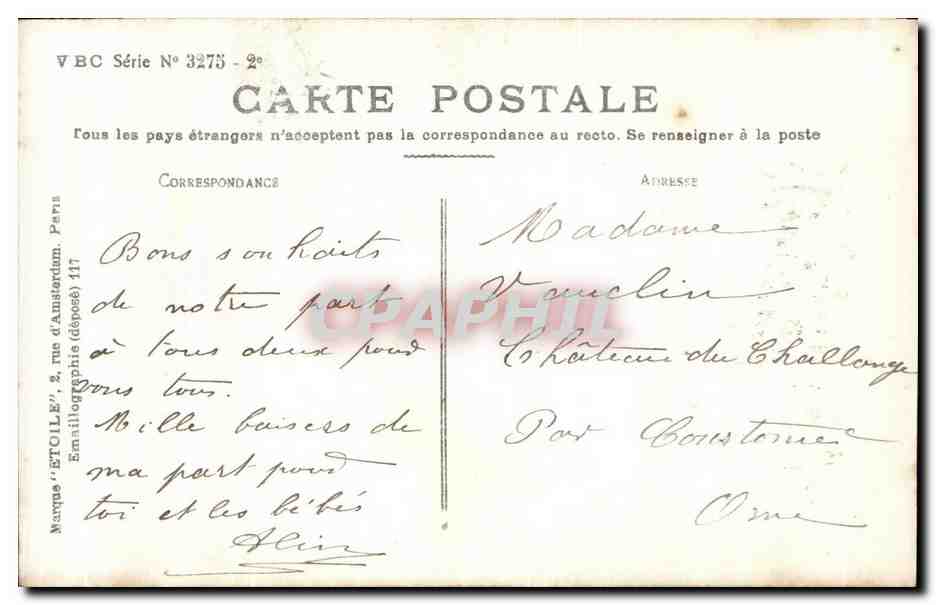 VBC Série Nº 3275 - 2º
CARTE POSTALE
Tous les pays étrangers n'acceptent pas la correspondance au recto. Se renseigner à la poste
CORRESPONDANCE
Bons souhaits
de notre part
à tous deux pour
vous tous.
Mille baisers de
ma part pour
toi et les bébés
ADRESSE
Madame
Vauclin
Château du Challange
Par
Orne
Marque "ETOILE", 2, rue d'Amsterdam. Paris
Emaillographie (déposé) 117
CPAPHIL